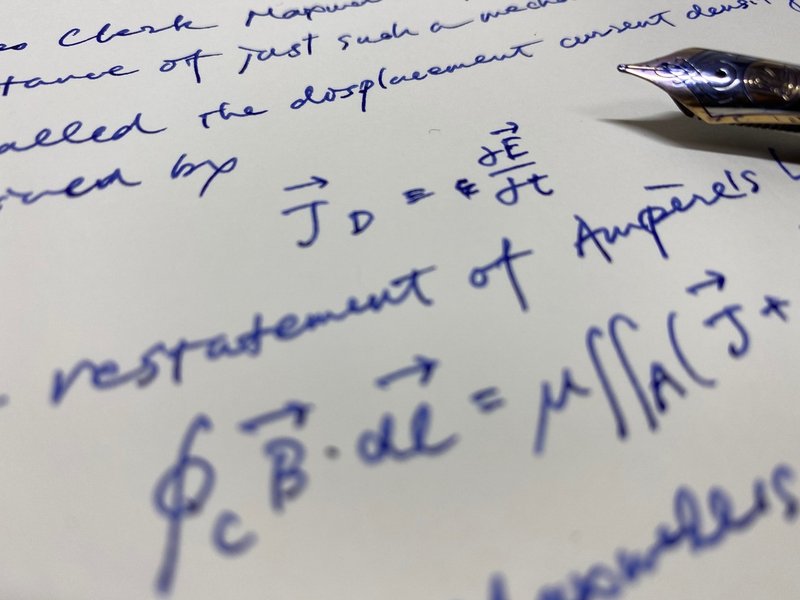 Clerk Maxwe
tance of just such a mecha
alled the displacement current densit
ined by
J⃗ D = ε ∂E⃗/∂t
restatement of Ampère's L
∮C B⃗ · dl⃗ = μ∬A (J⃗ +
axwell's